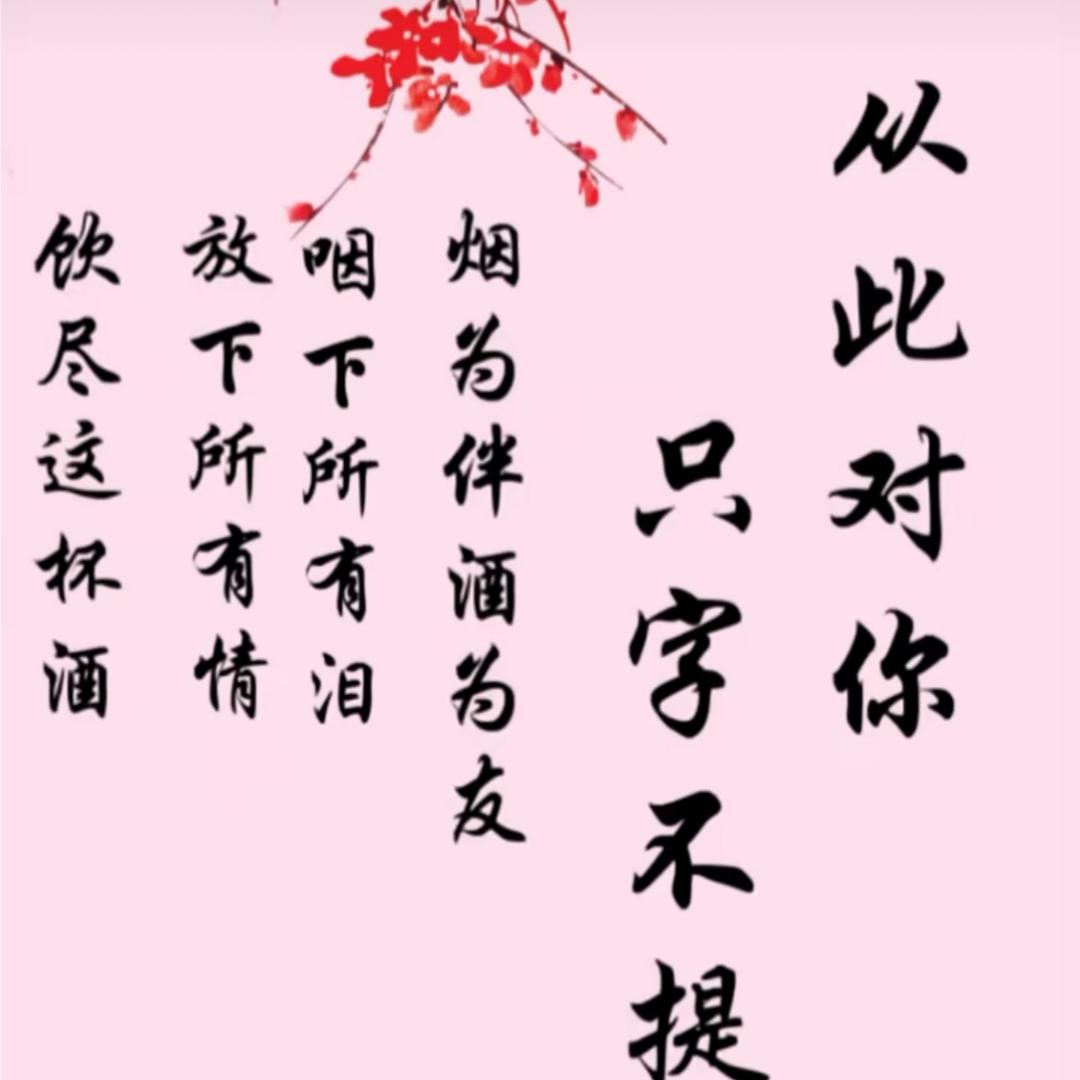 从此对你
只字不提
烟为伴酒为友
咽下所有泪
放下所有情
饮尽这杯酒